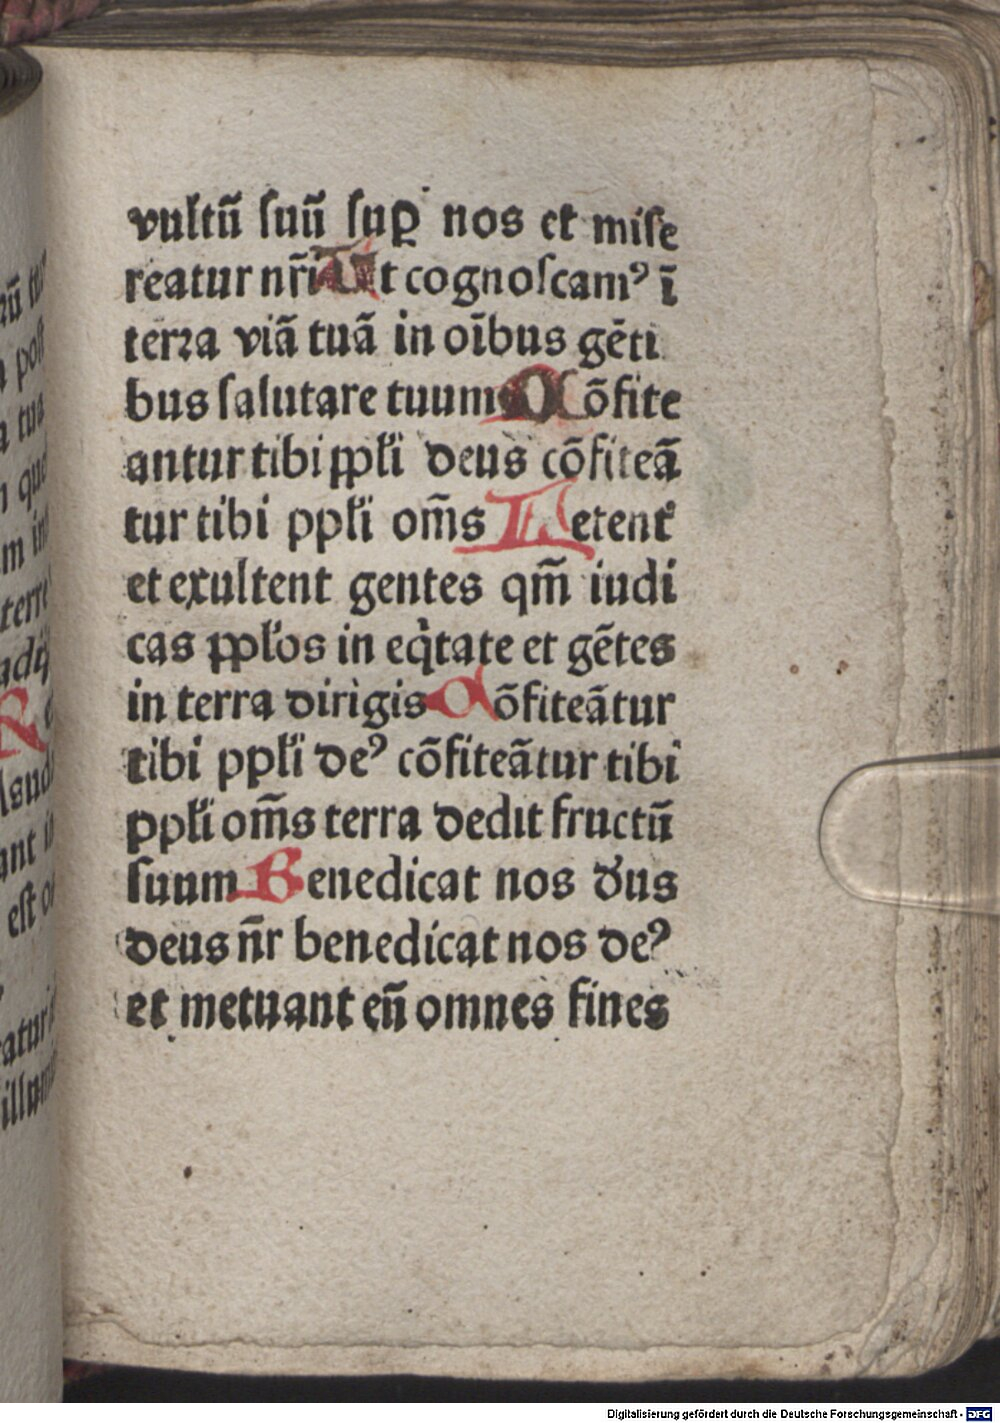 vultū ſuū ſuꝑ nos et miſe
reatur nr̄i Ut cognoſcamꝰ ī
terra viā tuā in oībus gēti
bus ſalutare tuum Cōfite
antur tibi ppl̄i deus cōfiteā
tur tibi ppl̄i om̄s Letent᷑
et exultent gentes qm̄ iudi
cas ppl̄os in eqͥtate et gētes
in terra dirigis Cōfiteātur
tibi ppl̄i deꝰ cōfiteātur tibi
ppl̄i om̄s terra dedit fructū
ſuum Benedicat nos dn̄s
deus nr̄ benedicat nos deꝰ
et metuant eū omnes fines
Digitalisierung gefördert durch die Deutsche Forschungsgemeinschaft - DFG